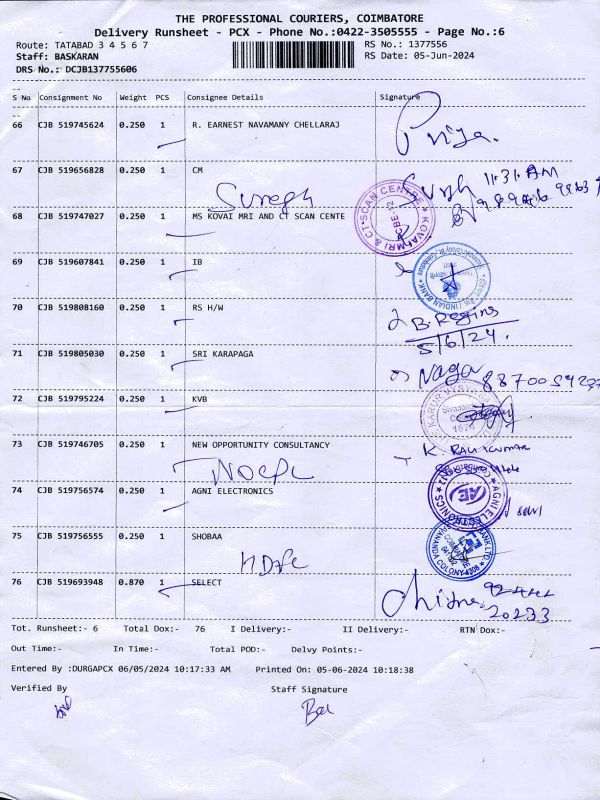 THE PROFESSIONAL COURIERS, COIMBATORE
Delivery Runsheet - PCX - Phone No.:0422-3505555 - Page No.:6
Route: TATABAD 3 4 5 6 7 RS No.: 1377556
Staff: BASKARAN RS Date: 05-Jun-2024
DRS No.: DCJB137755606
S No Consignment No Weight PCS Consignee Details Signature
66 CJB 519745624 0.250 1 R. EARNEST NAVAMANY CHELLARAJ
Priya.
67 CJB 519656828 0.250 1 CM
Suresh 11.31 AM
68 CJB 519747027 0.250 1 MS KOVAI MRI AND CT SCAN CENTE
KOVAI MRI & CT-SCAN CENTRE
69 CJB 519607841 0.250 1 IB
INDIAN BANK
70 CJB 519808160 0.250 1 RS H/W
B. Regins
5/6/24.
71 CJB 519805030 0.250 1 SRI KARAPAGA
Naga
72 CJB 519795224 0.250 1 KVB
KARUR VYSYA
73 CJB 519746705 0.250 1 NEW OPPORTUNITY CONSULTANCY
NOCPL
K. RAVI KUMAR
74 CJB 519756574 0.250 1 AGNI ELECTRONICS
AGNI ELECTRONICS
AE
75 CJB 519756555 0.250 1 SHOBAA
HDFC
BANK LTD
76 CJB 519693948 0.870 1 SELECT
20233
Tot. Runsheet:- 6 Total Dox:- 76 I Delivery:- II Delivery:- RTN Dox:-
Out Time:- In Time:- Total POD:- Delvy Points:-
Entered By :DURGAPCX 06/05/2024 10:17:33 AM Printed On: 05-06-2024 10:18:38
Verified By Staff Signature